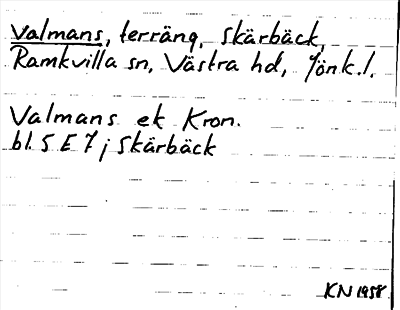 Valmans, terräng, Skärbäck,
Ramkvilla sn, Västra hd, Jönk. l.
Valmans ek Kron.
bl. 5 E 7 j Skärbäck
KN 1958